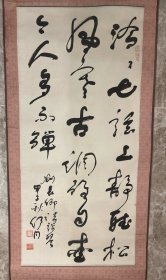 泠泠七弦上靜聽松
風寒古調雖自愛
今人多不彈
劉長卿
甲子秋